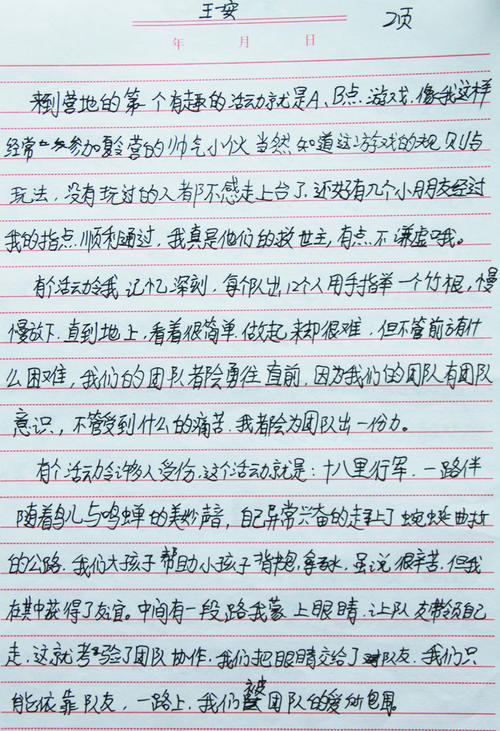 王安 2页
年 月 日
来到营地的第一个有趣的活动就是A、B点游戏,像我这样
经常参加夏令营的帅气小伙当然知道这游戏的规则与
玩法,没有玩过的人都不感走上台了.还好有几个小朋友经过
我的指点顺利通过,我真是他们的救世主,有点不谦虚哦。
有个活动令我记忆深刻,每个队出12个人用手指举一个竹棍,慢
慢放下.直到地上,看着很简单.做起来却很难,但不管前方有什
么困难,我们的团队都会勇往直前,因为我们的团队有团队
意识,不管受到什么的痛苦.我都会为团队出一份力。
有个活动令许多人受伤.这个活动就是:十八里行军.一路伴
随着鸟儿与鸣蝉的美妙声音,自己异常兴奋的走上了蜿蜒曲折
的公路.我们大孩子帮助小孩子背包拿水,虽说很辛苦.但我
在其中获得了友宜.中间有一段路我蒙上眼睛.让队友带领自己
走.这就考验了团队协作.我们把眼睛交给了队友.我们只
能依靠队友,一路上,我们被团队的爱所包围。